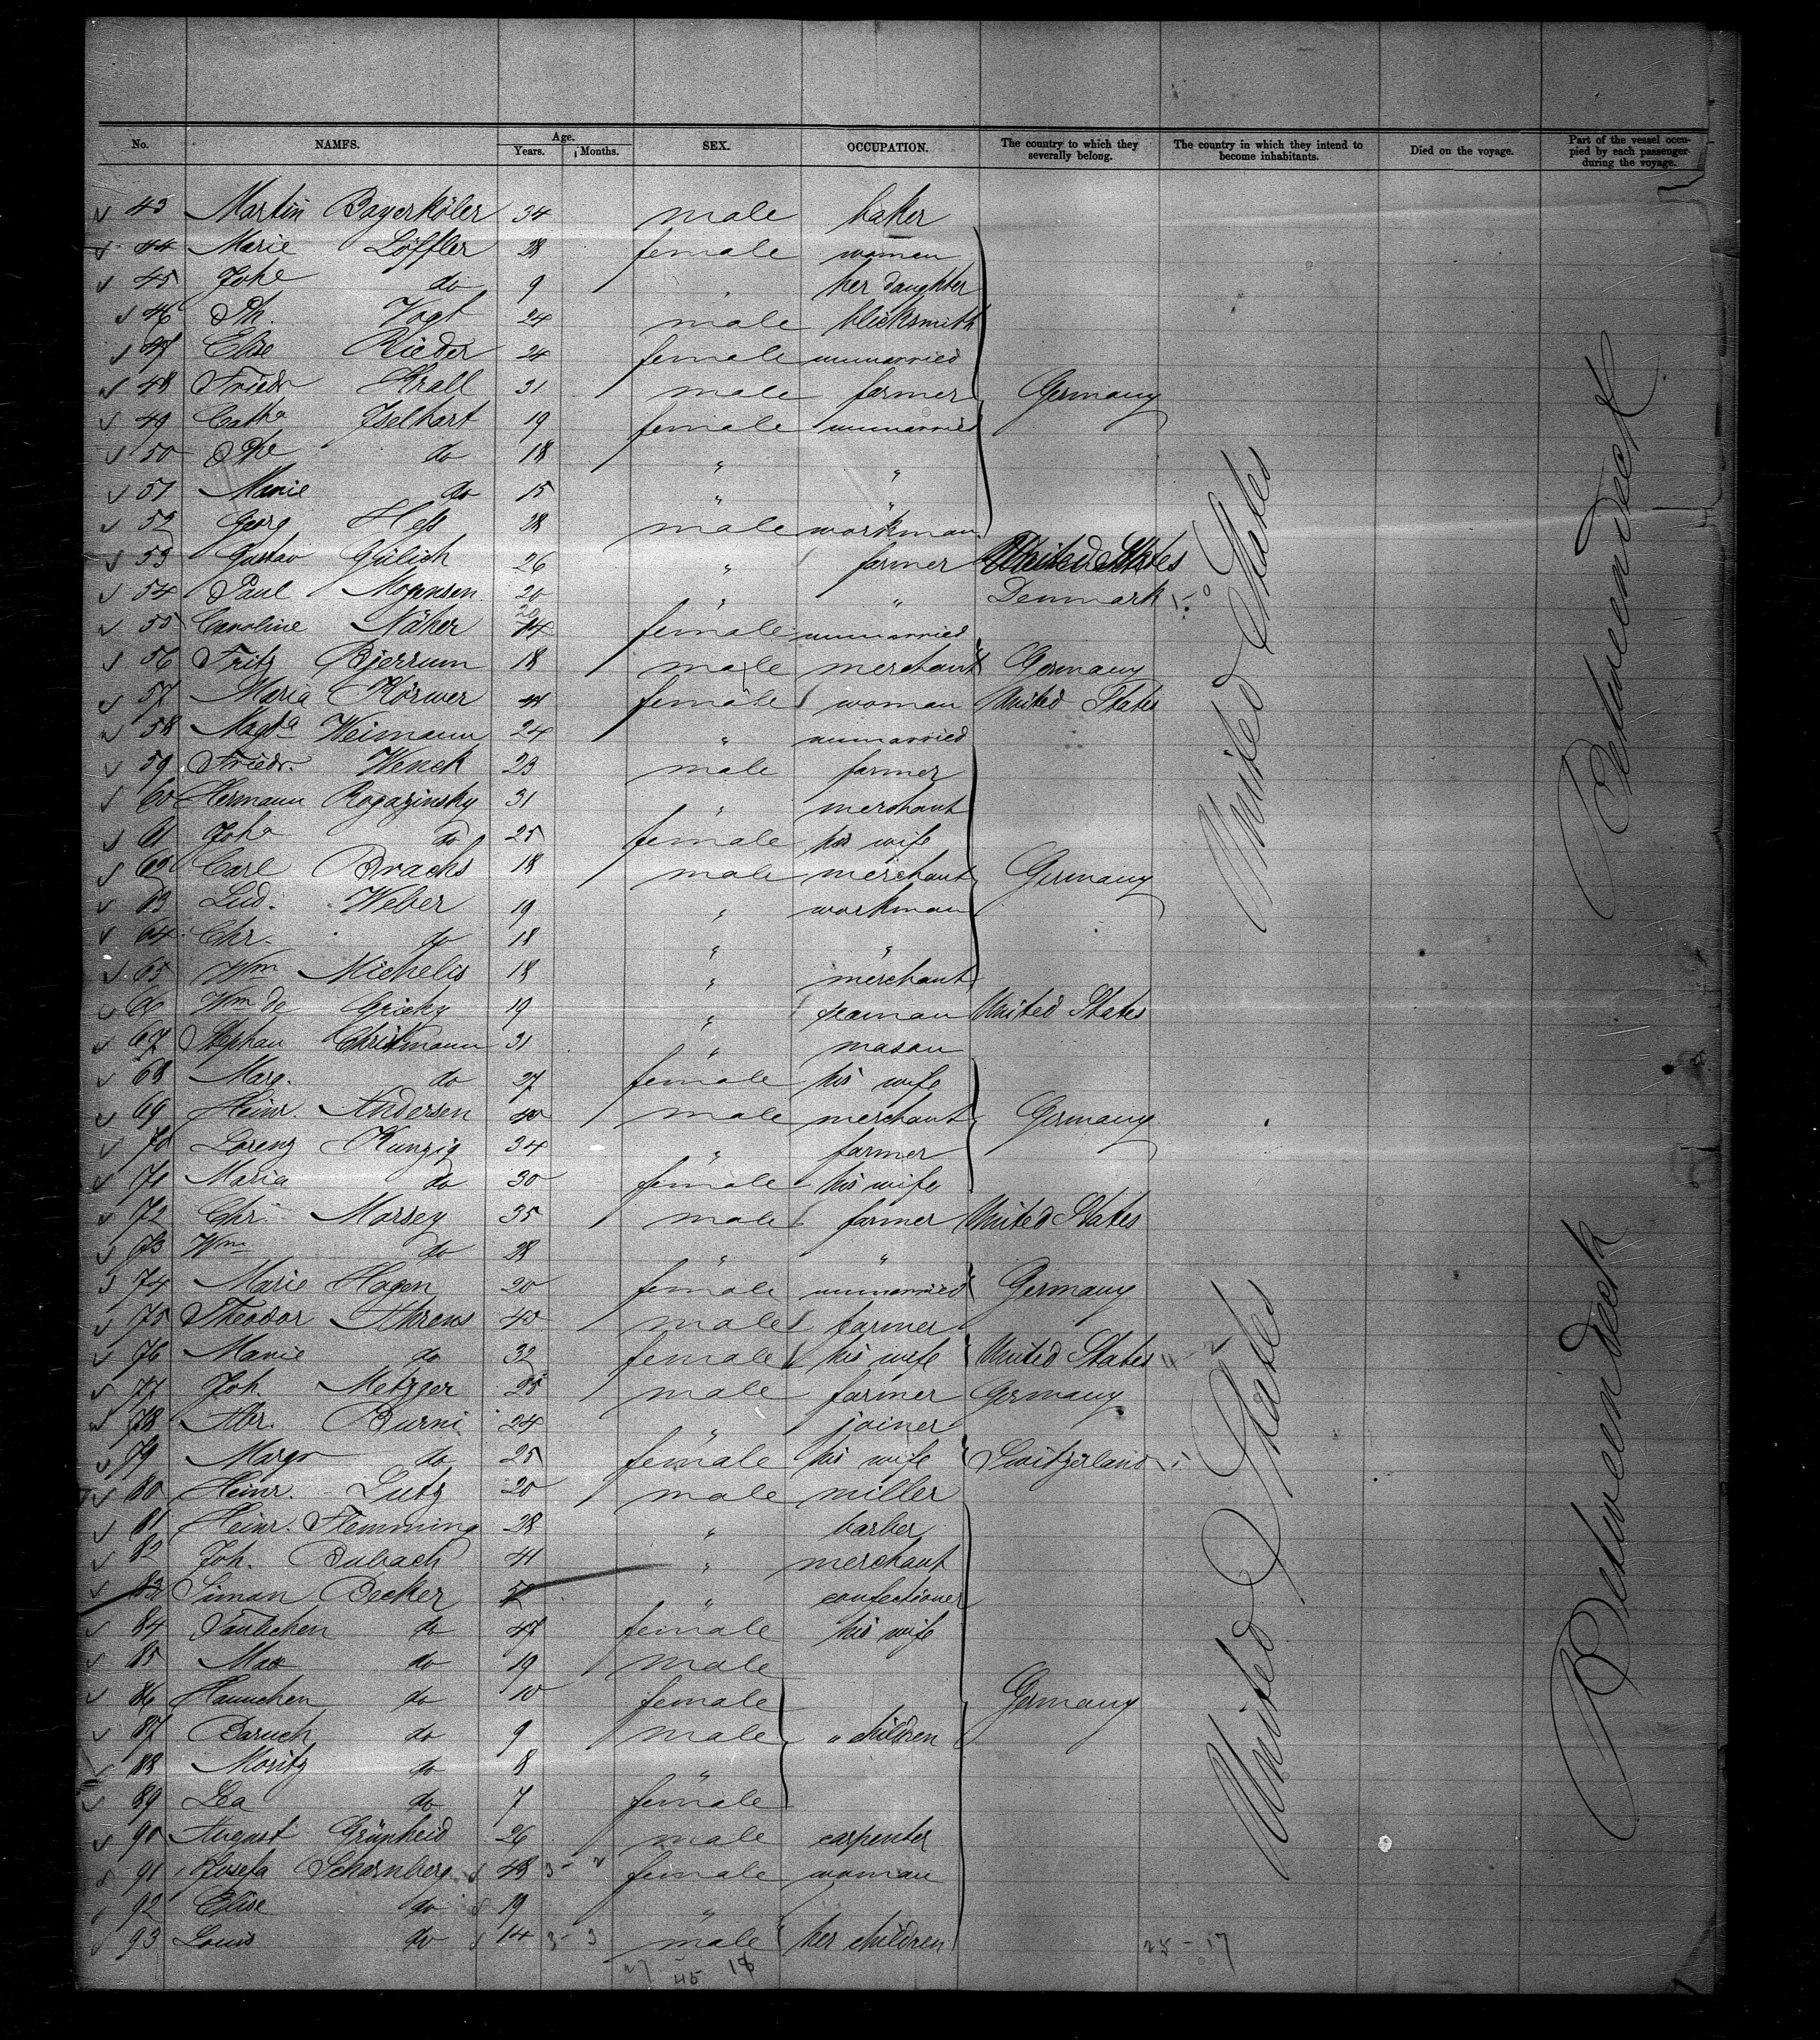 No. NAMES. Age. Years. Months. SEX. OCCUPATION. The country to which they severally belong. The country in which they intend to become inhabitants. Died on the voyage. Part of the vessel occupied by each passenger during the voyage.
43 Martin Bayerköler 34 male baker
44 Marie Löffler 28 female woman
45 Johe do 9 " her daughter
46 Ph. Vogt 24 male blicksmith
47 Elise Rieder 24 female unmarried
48 Friedr Krall 31 male farmer Germany
49 Catha Iselhart 19 female unmarried
50 do 18 " "
51 Marie do 15 " "
52 Georg Heß 28 male workman
53 Gustav Gülich 26 " farmer United States
54 Paul Mogensen 20 " " Denmark
55 Caroline Näher female unmarried
56 Fritz Bjerrum 18 male merchant Germany
57 Maria Körwer female woman United States
58 Magda Weimann 24 " unmarried
59 Friedr. Wenck 23 male farmer
60 Hermann Rogazinsky 31 " merchant
61 Joha do 25 female his wife
62 Carl Brachs 18 male merchant Germany
63 Lud. Weber 19 " workman
64 Chr. do 18 " "
65 Wm Michelis 18 " merchant
66 Wm de 19 " seaman United States
67 Stephan Christmann 31 " mason
68 Marg. do 27 female his wife
69 Heinr. Andersen 40 male merchant Germany
70 Lorenz Kunzig 34 " farmer
71 Maria do 30 female his wife
72 Chr. Morsey 35 male farmer United States
73 Wm do 28 " "
74 Marie Hagen 20 female unmarried Germany
75 Theodor Ahrens 40 male farmer
76 Marie do 32 female his wife United States
77 Joh. Metzger 25 male farmer Germany
78 Abr. Burni 24 " joiner
79 Margr do 25 female his wife Switzerland
80 Heinr. Lutz 20 male miller
81 Heinr. Flemming 28 " barber
82 Joh. Bubach 41 " merchant
83 Simon Becker " confectioner
84 Taubchen do 47 female his wife
85 Max do 19 male
86 Hannchen do 10 female Germany
87 Baruch do 9 male " children
88 Moritz do 8 "
89 Lea do 7 female
90 August Grünheid 26 male carpenter
91 Josefa Scharnberg 48 female woman
92 Elise do 19 "
93 Louis do 14 male her children
United States
United States
Betweendeck
Betweendeck
27 45 18
28 - 17